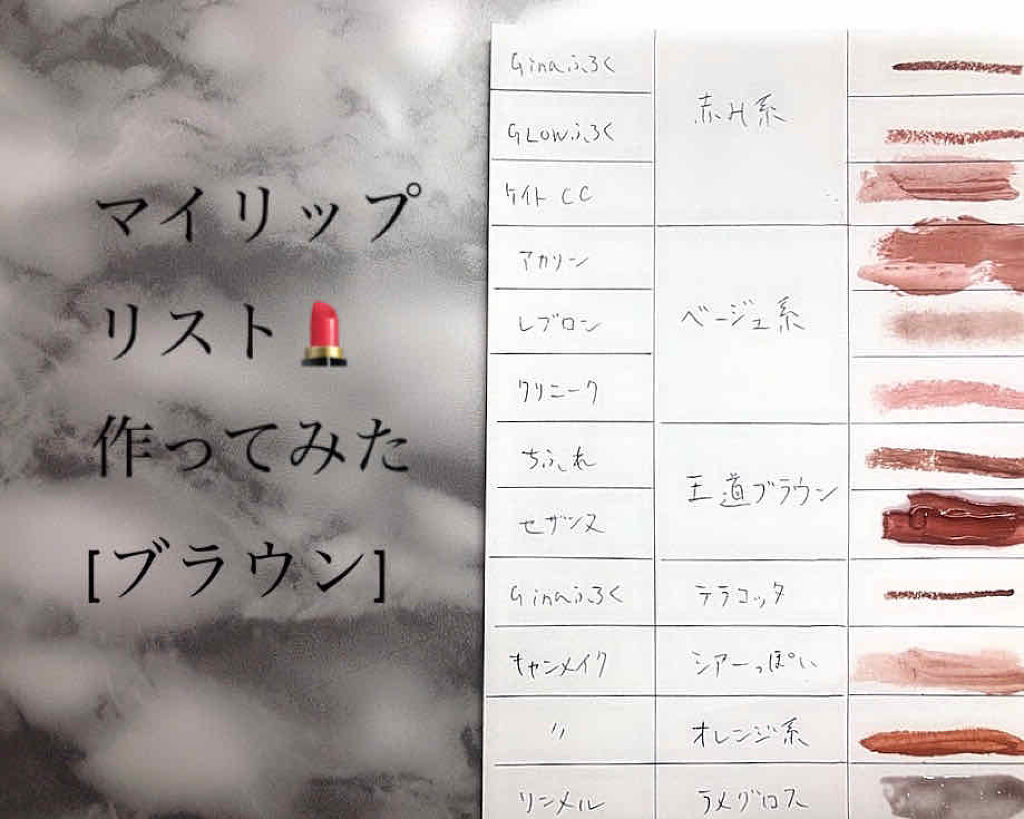 マイリップ
リスト💄
作ってみた
[ブラウン]
Ginaふろく
赤み系
GLOWふろく
ケイト CC
アカリン
ベージュ系
レブロン
クリニーク
ちふれ
王道ブラウン
セザンヌ
Ginaふろく
テラコッタ
キャンメイク
シアーっぽい
〃
オレンジ系
リンメル
ラメグロス